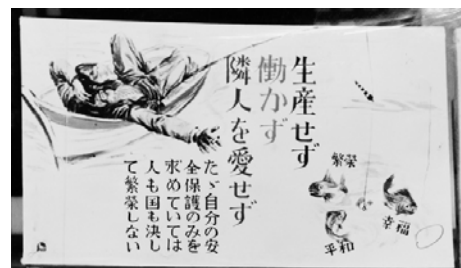 生産せず
働かず
隣人を愛せず
たゞ自分の安
全保護のみを
求めていては
人も国も決し
て繁栄しない
繁榮
幸福
平和